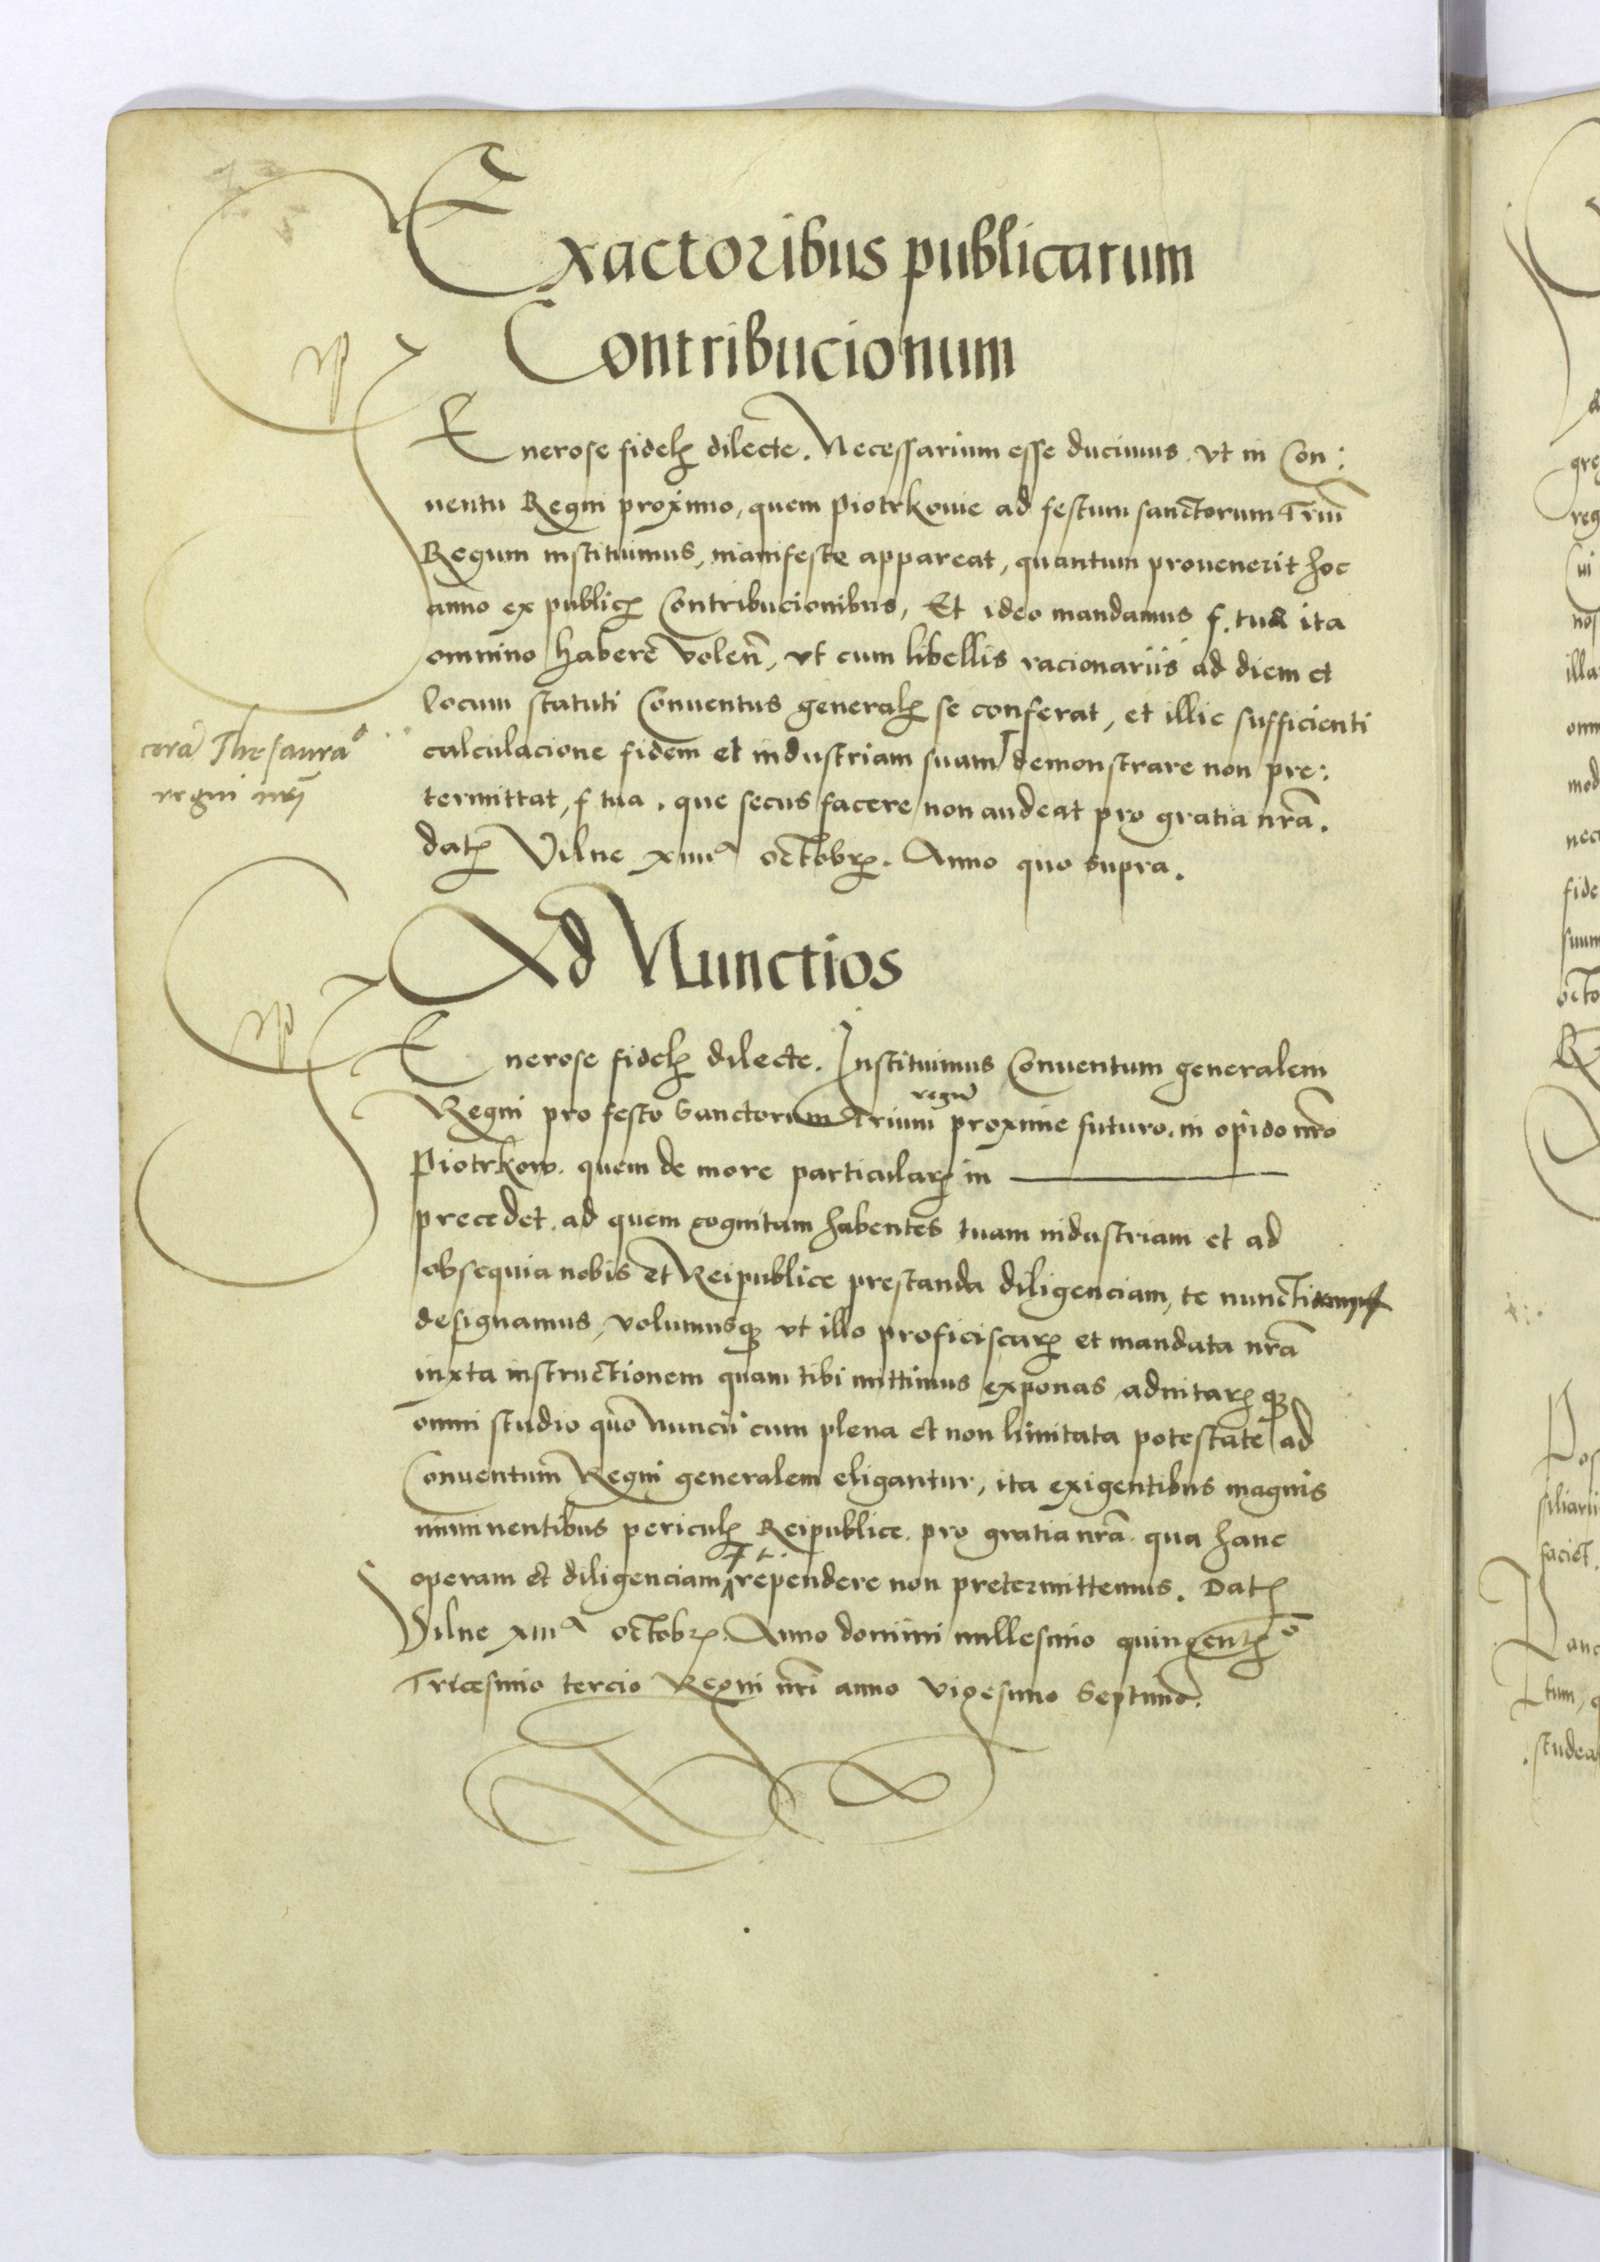 Exactoribus publicarum
Contribucionum
Generose fidelꝭ dilecte. Necessarium esse ducimus. vt in Con:
uentu Regni proximo, quem Piotrkouie ad festum sanctorum Triũ
Regum instituimus, manifeste appareat, quantum prouenerit hoc
anno ex publicꝭ Contribucionibus, Et ideo mandamus f. tuæ ita
omnino habere volen̄, vt cum libellis racionariis ad diem et
locum statuti Conuentus generalꝭ se conferat, et illic sufficienti
calculacione fidem et industriam suam demonstrare non pre:
corã Thesaurãº
regni nr̃i
termittat, f tua. que secus facere non audeat pro gratia nr̃a.
datꝭ Vilne xiiiiª octobrꝭ. Anno quo supra.
Ad Nunctios
Generose fidelꝭ dilecte. Instituimus Conuentum generalem
regũ
Regni pro festo Sanctorum Trium proxime futuro. in opido nr̃o
Piotrkow. quem de more particularꝭ in
precedet. ad quem cognitam habentes tuam industriam et ad
obsequia nobis et Reipublice prestanda diligenciam, te nuncti
designamus, volumusqꝫ vt illo proficiscarꝭ et mandata nr̃a
iuxta instructionem quam tibi mittimus exponas adnitarꝭ qꝫ
omni studio quo Nuncii cum plena et non limitata potestate ad
Conuentum Regni generalem eligantur, ita exigentibus magnis
imminentibus periculꝭ Reipublice. pro gratia nr̃a. qua hanc
operam et diligenciam rependere non pretermittemus. Datꝭ
Vilne xiiiiª octobrꝭ. Anno domini millesimo quingentꝭº
Tricesimo tercio Regni nr̃i anno vigesimo Septimo.